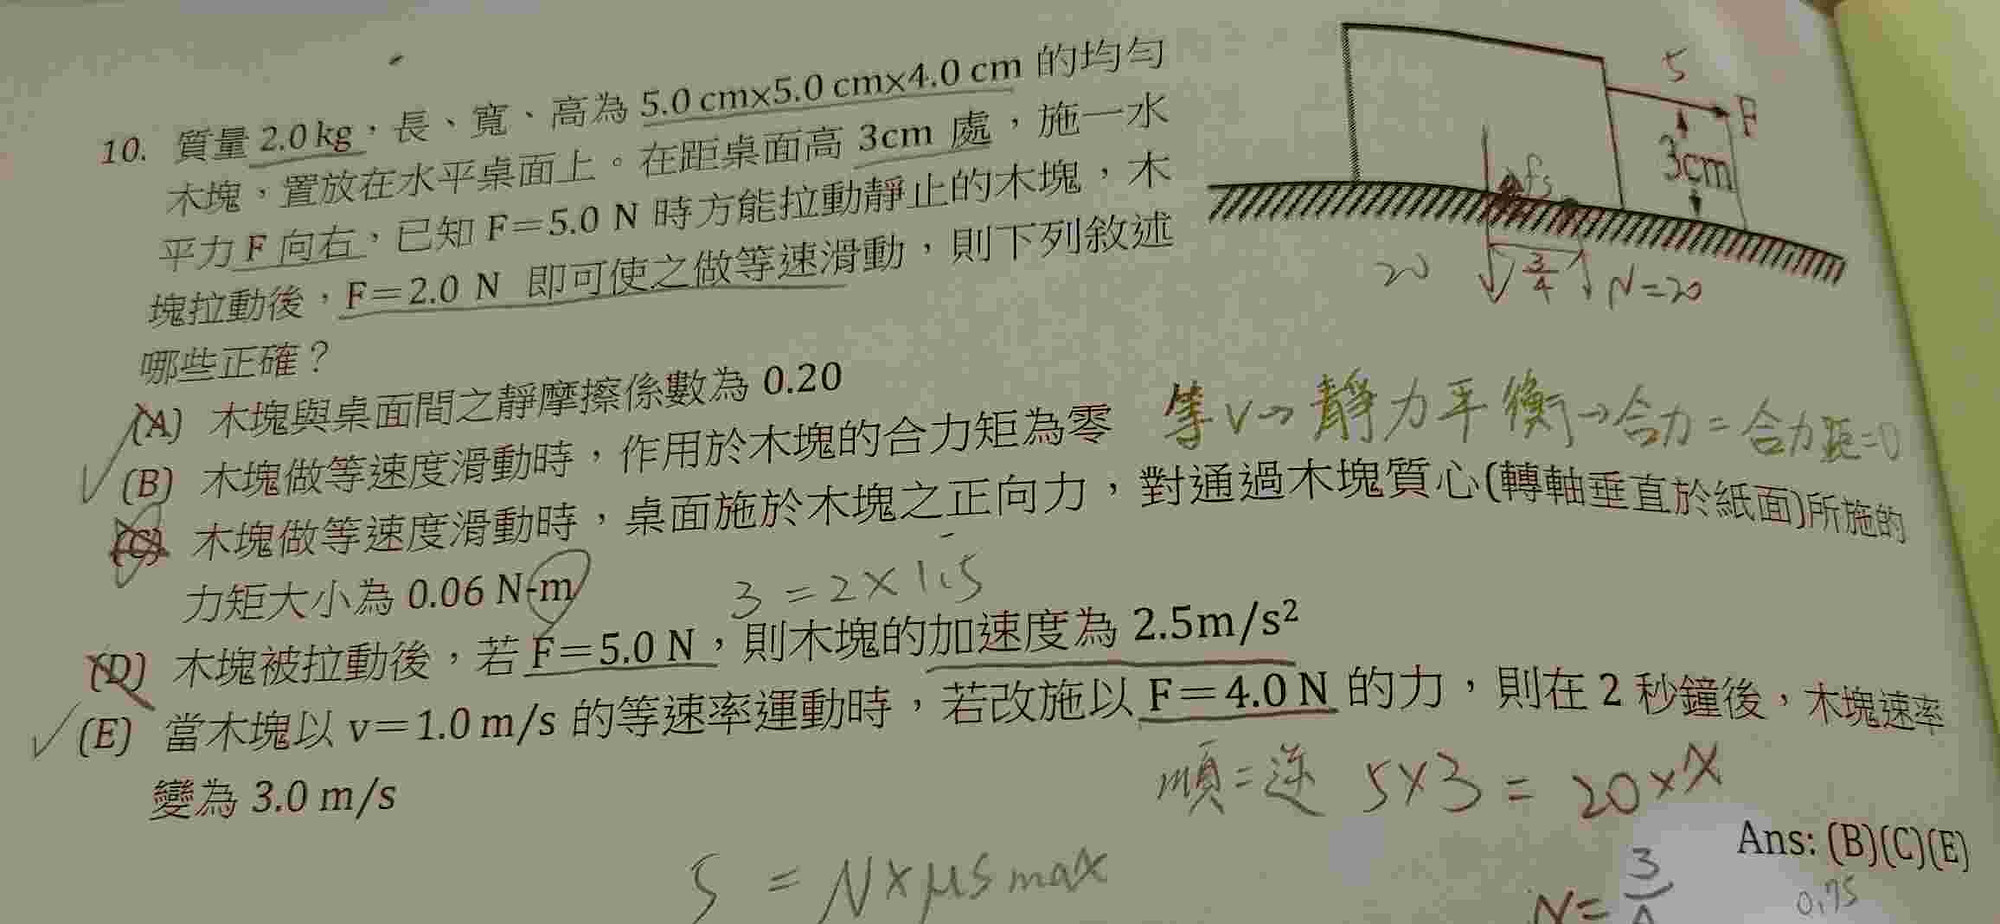 10. 質量 2.0 kg，長、寬、高為 5.0 cm×5.0 cm×4.0 cm 的均勻
木塊，置放在水平桌面上。在距桌面高 3cm 處，施一水
平力 F 向右，已知 F=5.0 N 時方能拉動靜止的木塊，木
塊拉動後，F=2.0 N 即可使之做等速滑動，則下列敘述
哪些正確？
5
F
3cm
fs
20
3/4
N=20
(A) 木塊與桌面間之靜摩擦係數為 0.20
(B) 木塊做等速度滑動時，作用於木塊的合力矩為零
等v→靜力平衡→合力=合力距=0
(C) 木塊做等速度滑動時，桌面施於木塊之正向力，對通過木塊質心(轉軸垂直於紙面)所施的
力矩大小為 0.06 N-m
3=2×1.5
(D) 木塊被拉動後，若 F=5.0 N，則木塊的加速度為 2.5m/s²
(E) 當木塊以 v=1.0 m/s 的等速率運動時，若改施以 F=4.0 N 的力，則在 2 秒鐘後，木塊速率
變為 3.0 m/s
順=逆 5×3=20×x
Ans: (B)(C)(E)
5=N×μs max
N=3/4
0.75